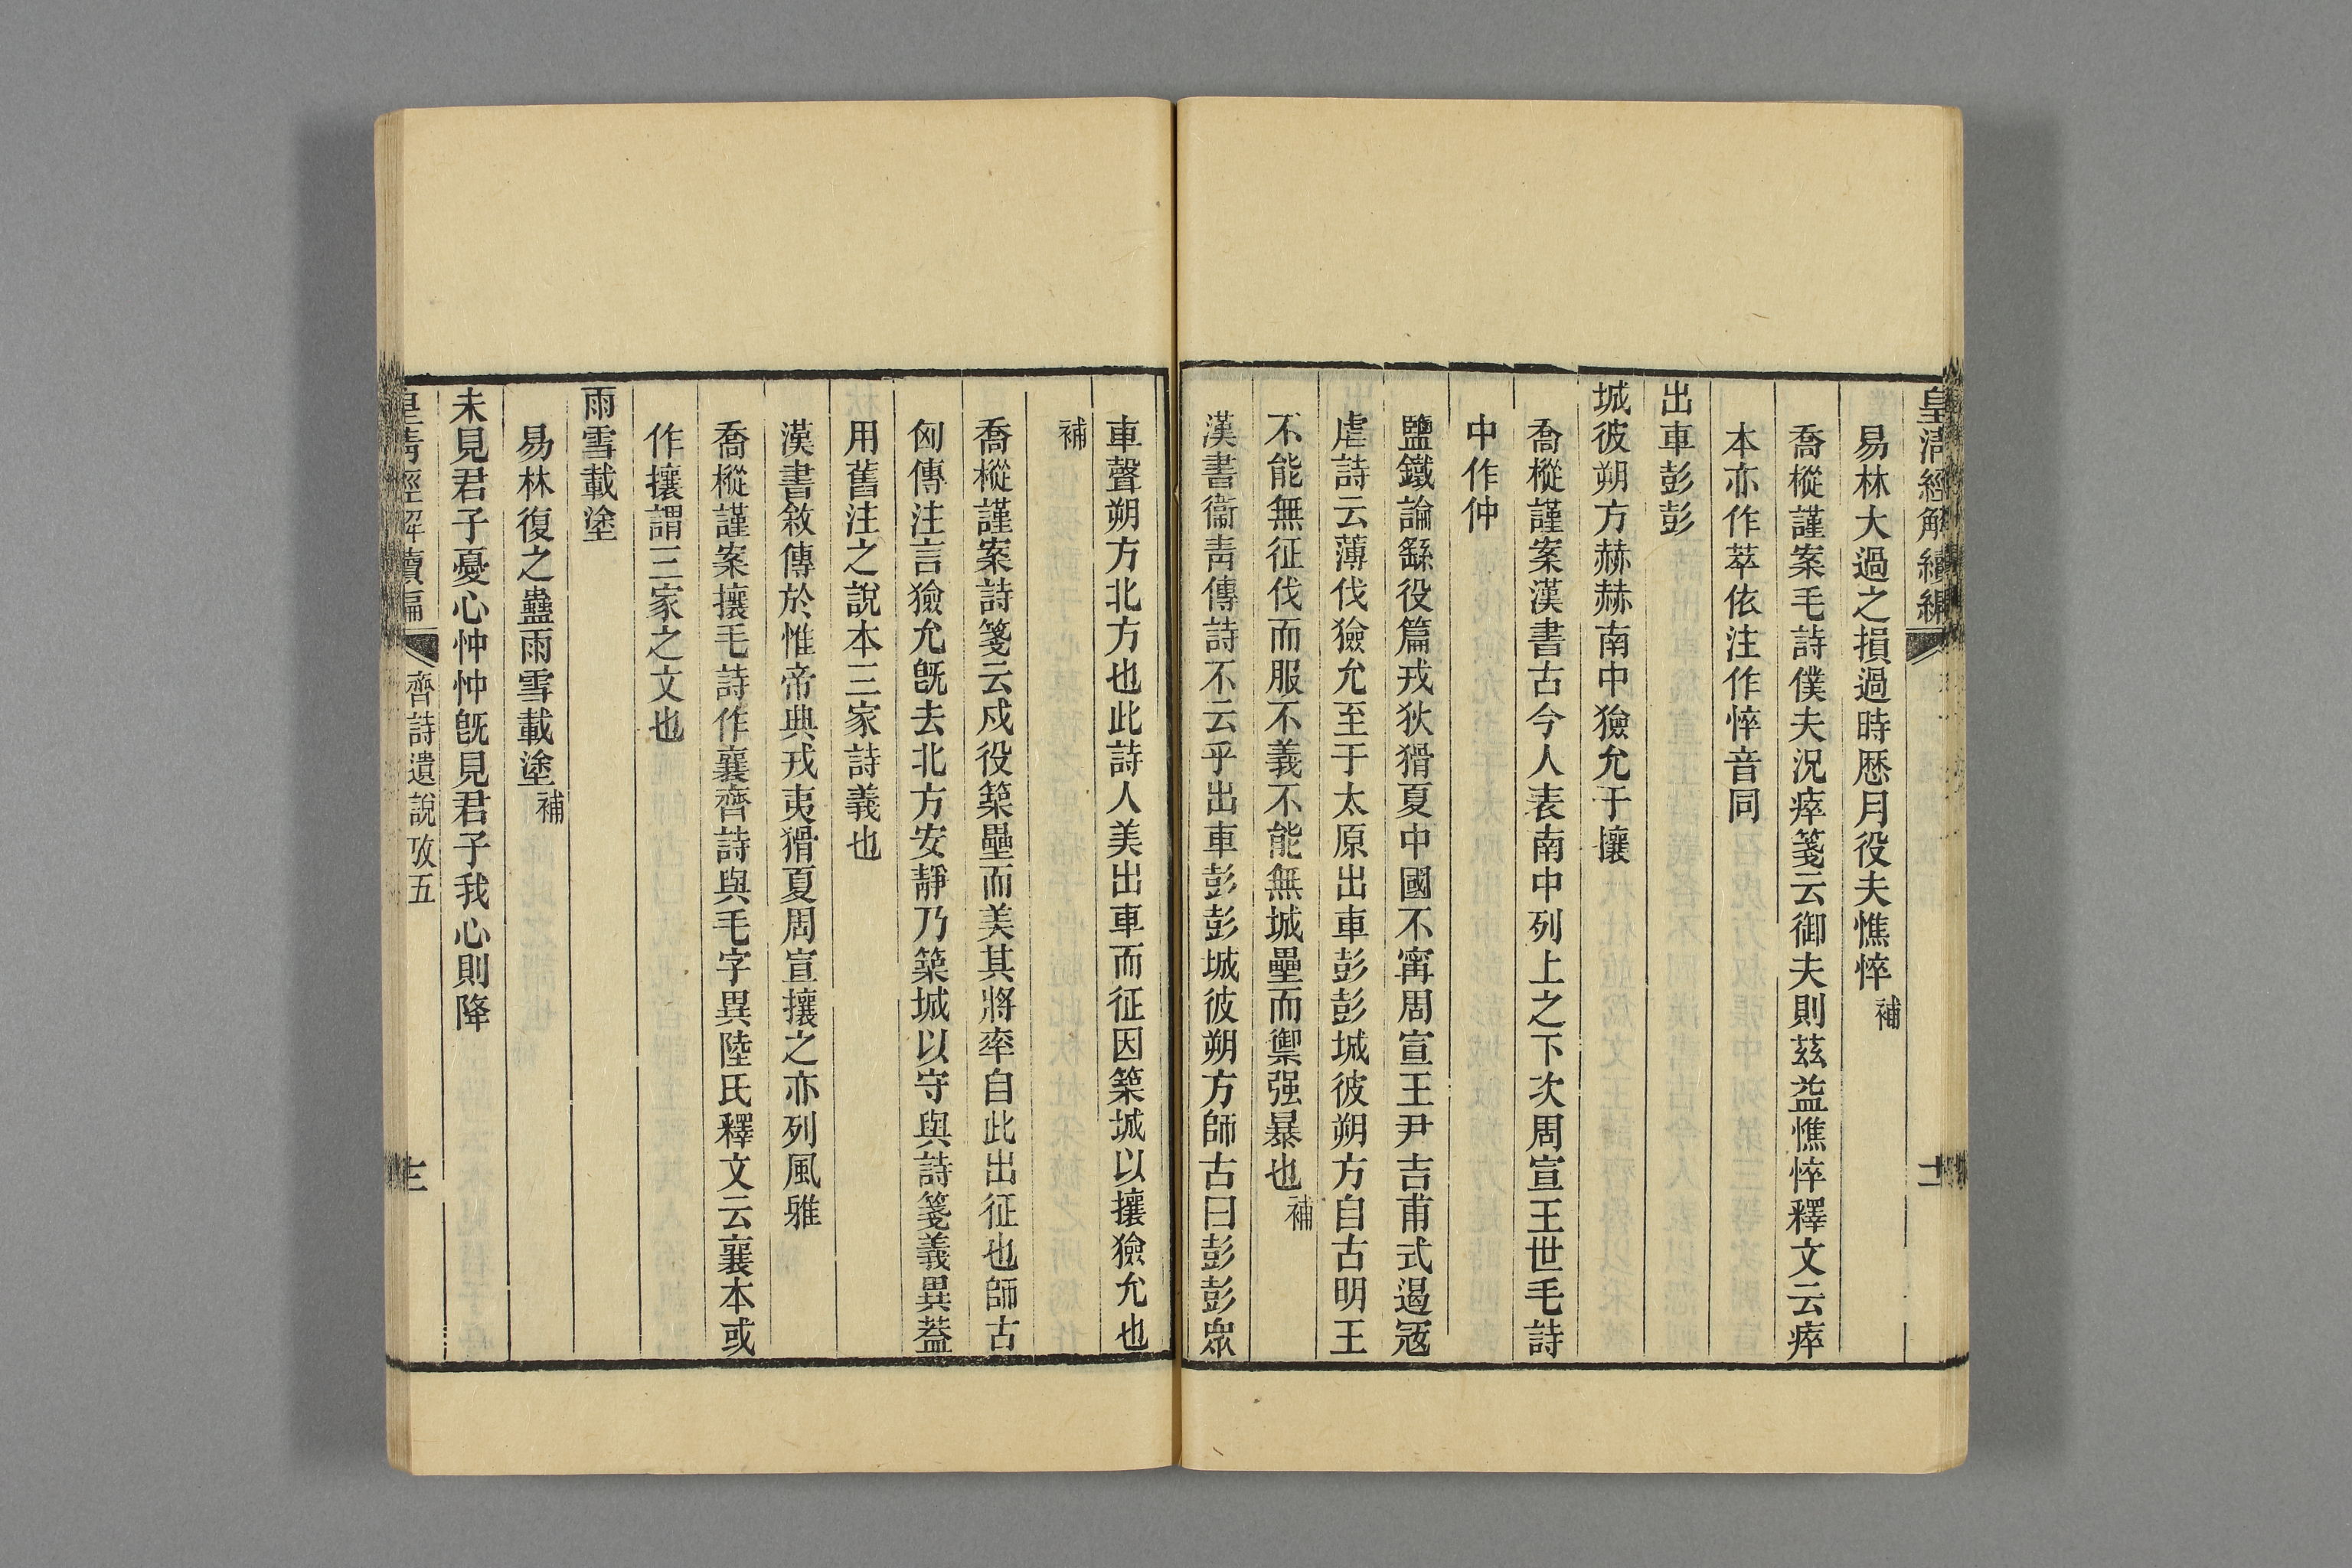 皇清經解續編
易林大過之損過時歷月役夫憔悴補
喬樅謹案毛詩僕夫況瘁箋云御夫則茲益憔悴釋文云瘁
本亦作萃依注作悴音同
出車彭彭
城彼朔方赫赫南中獫允于攘
喬樅謹案漢書古今人表南中列上之下次周宣王世毛詩
中作仲
鹽鐵論繇役篇戎狄猾夏中國不甯周宣王尹吉甫式遏寇
虐詩云薄伐獫允至于太原出車彭彭城彼朔方自古明王
不能無征伐而服不義不能無城壘而禦强暴也補
漢書衞靑傳詩不云乎出車彭彭城彼朔方師古曰彭彭眾
車聲朔方北方也此詩人美出車而征因築城以攘獫允也
補
喬樅謹案詩箋云戍役築壘而美其將率自此出征也師古
匈傳注言獫允旣去北方安靜乃築城以守與詩箋義異葢
用舊注之說本三家詩義也
漢書敘傳於惟帝典戎夷猾夏周宣攘之亦列風雅
喬樅謹案攘毛詩作襄齊詩與毛字異陸氏釋文云襄本或
作攘謂三家之文也
雨雪載塗
易林復之蠱雨雪載塗補
未見君子憂心忡忡旣見君子我心則降
皇清經解續編 齊詩遺說攷五